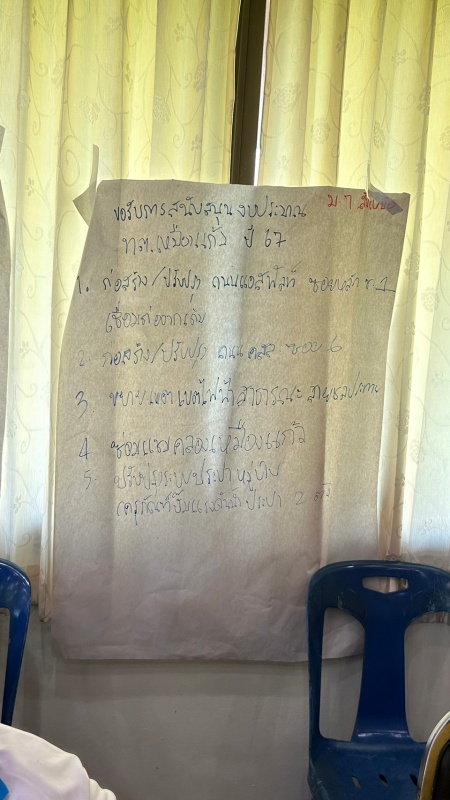 ขอรับการสนับสนุนงบประมาณ
ม 7
ทต.เหมืองแก้ว ปี 67
1. ก่อสร้าง/ปรับปรุง ถนนแอสฟัลท์ ซอยหลัก ซ.1
เชื่อมต่อจากเดิม
2. ก่อสร้าง/ปรับปรุง ถนน คสล ซอย 6
3 ขยายเขตไฟฟ้าสาธารณะ สายชลประทาน
4 ซ่อมแซมคลองเหมืองแก้ว
5. ปรับปรุงระบบประปาหมู่บ้าน
(ครุภัณฑ์ปั๊มแรงดันน้ำประปา 2 ตัว